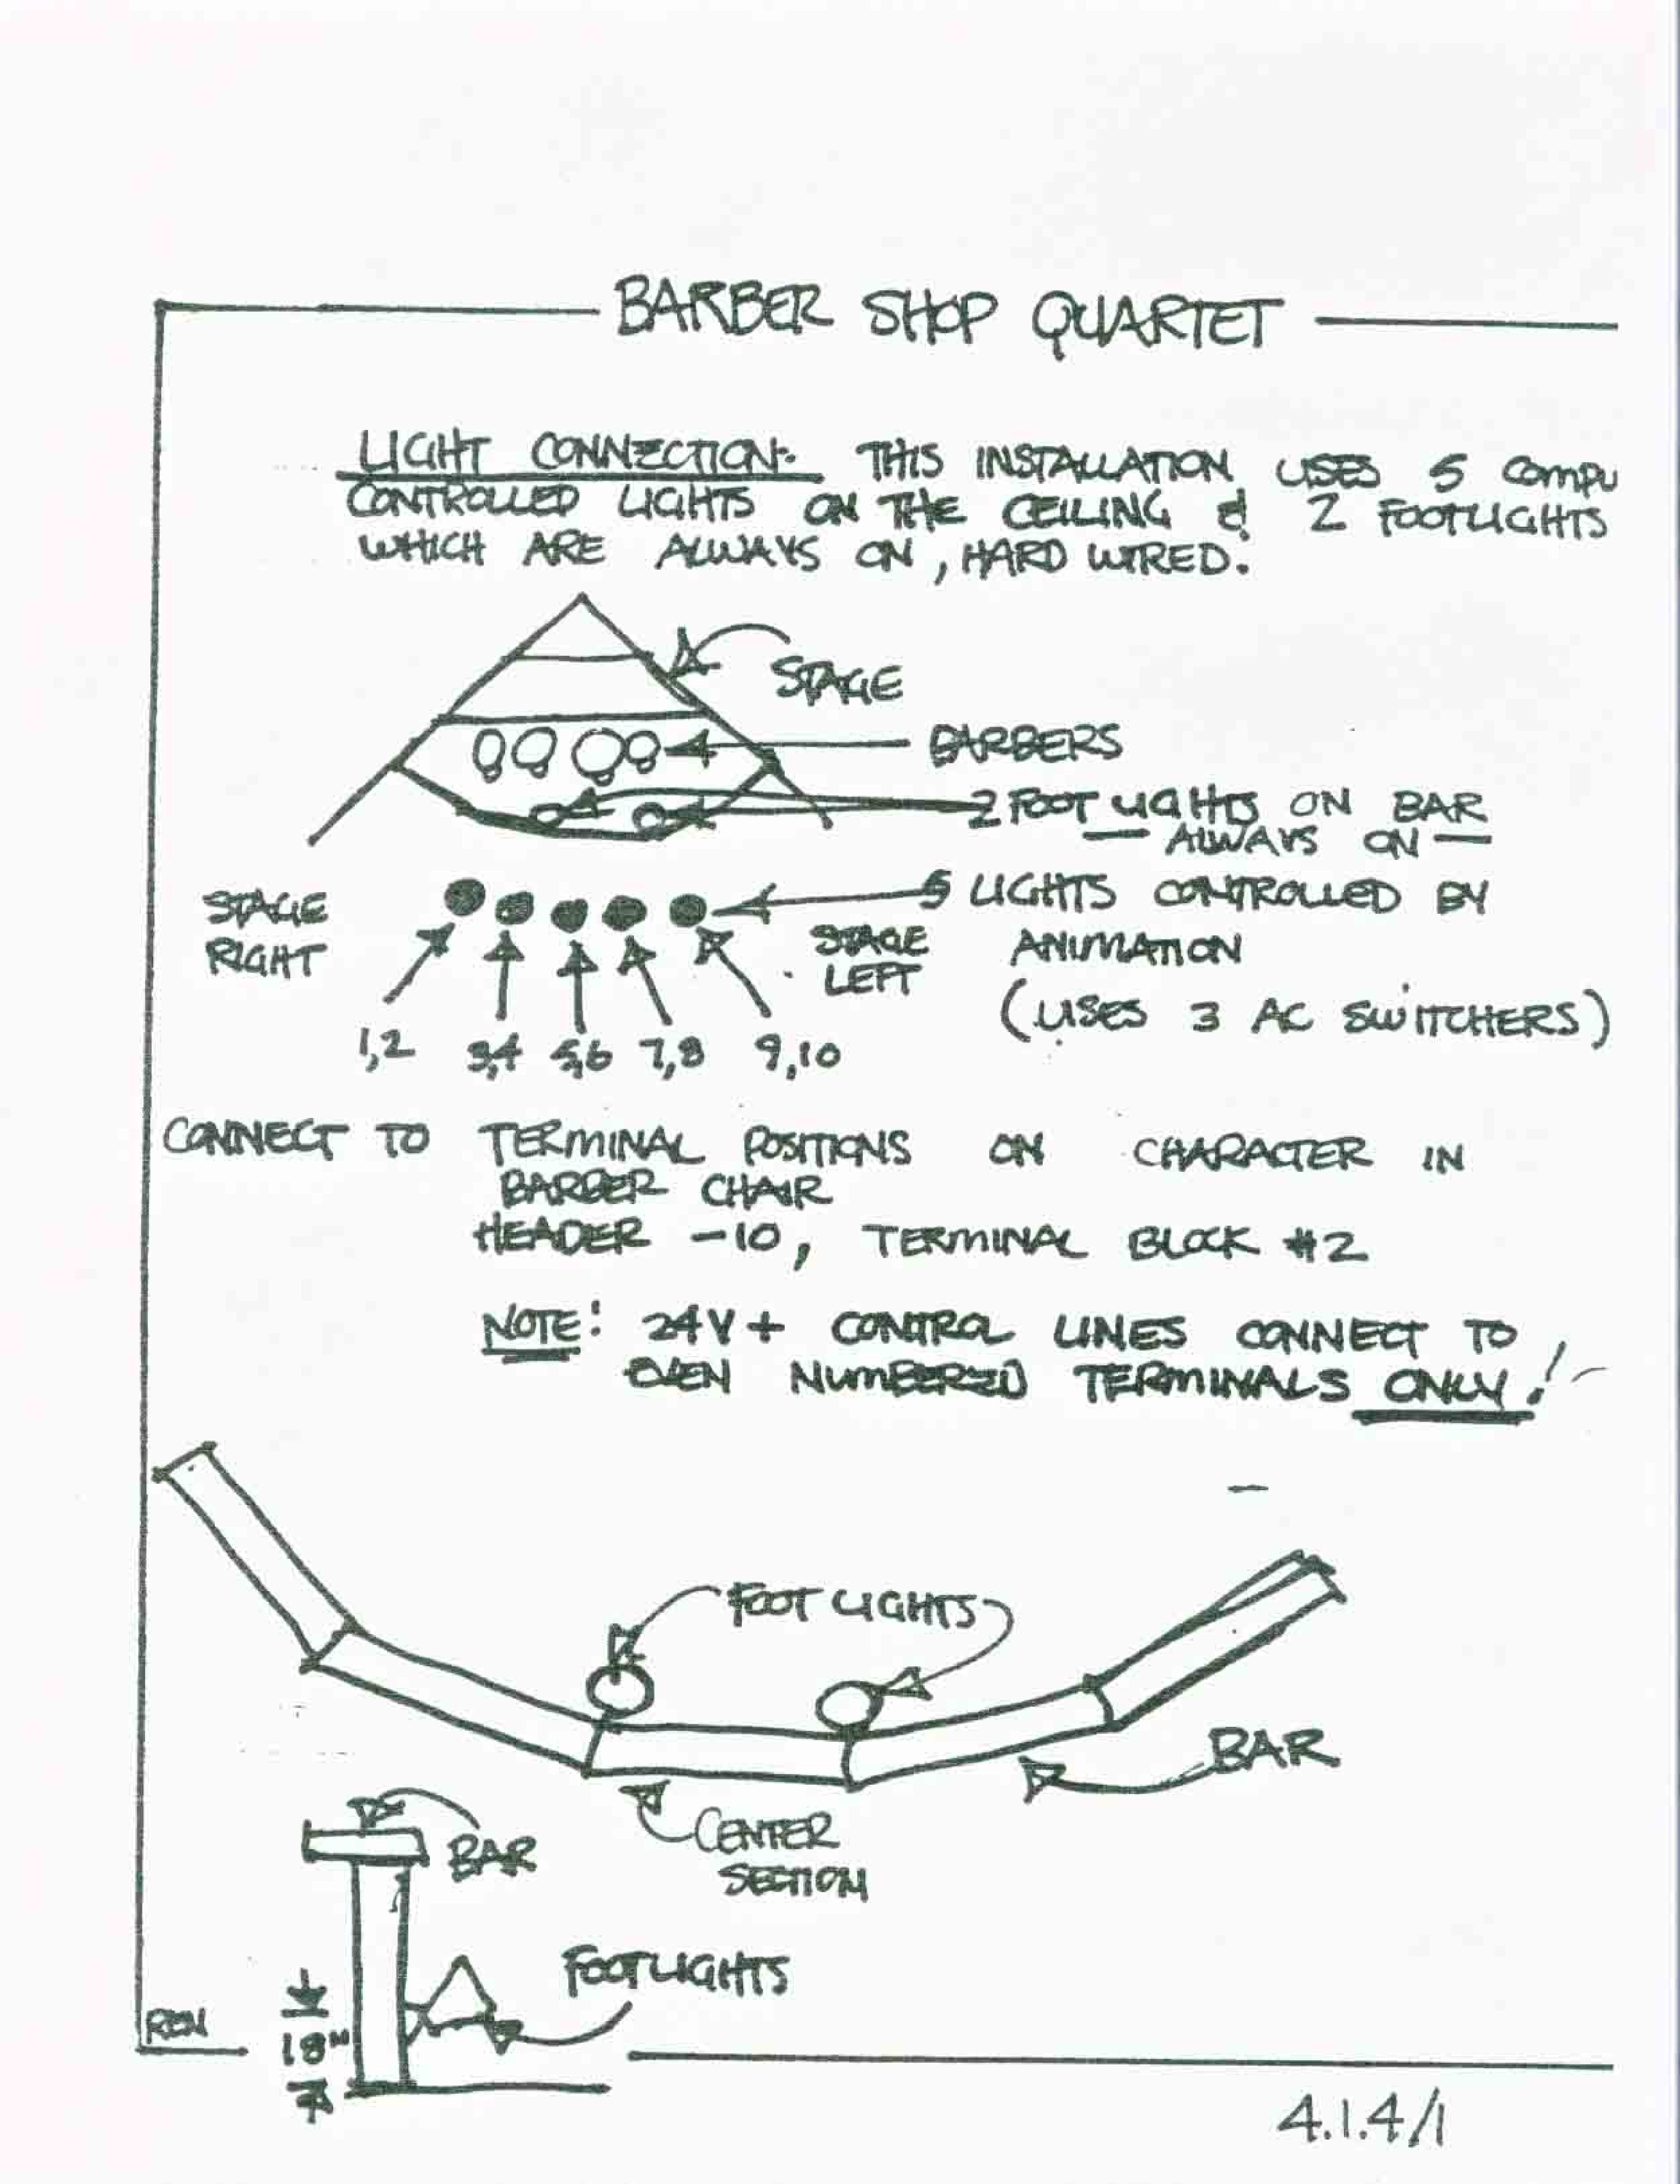 BARBER SHOP QUARTET
LIGHT CONNECTION: THIS INSTALLATION USES 5 COMPU
CONTROLLED LIGHTS ON THE CEILING & 2 FOOTLIGHTS
WHICH ARE ALWAYS ON, HARD WIRED.
STAGE
BARBERS
2 FOOT LIGHTS ON BAR
— ALWAYS ON —
5 LIGHTS CONTROLLED BY
ANIMATION
(USES 3 AC SWITCHERS)
STAGE
RIGHT
STAGE
LEFT
1,2 3,4 5,6 7,8 9,10
CONNECT TO TERMINAL POSITIONS ON CHARACTER IN
BARBER CHAIR
HEADER -10, TERMINAL BLOCK #2
NOTE: 24V + CONTROL LINES CONNECT TO
EVEN NUMBERED TERMINALS ONLY!
FOOT LIGHTS
BAR
CENTER
SECTION
BAR
FOOTLIGHTS
18"
REN
4.1.4/1